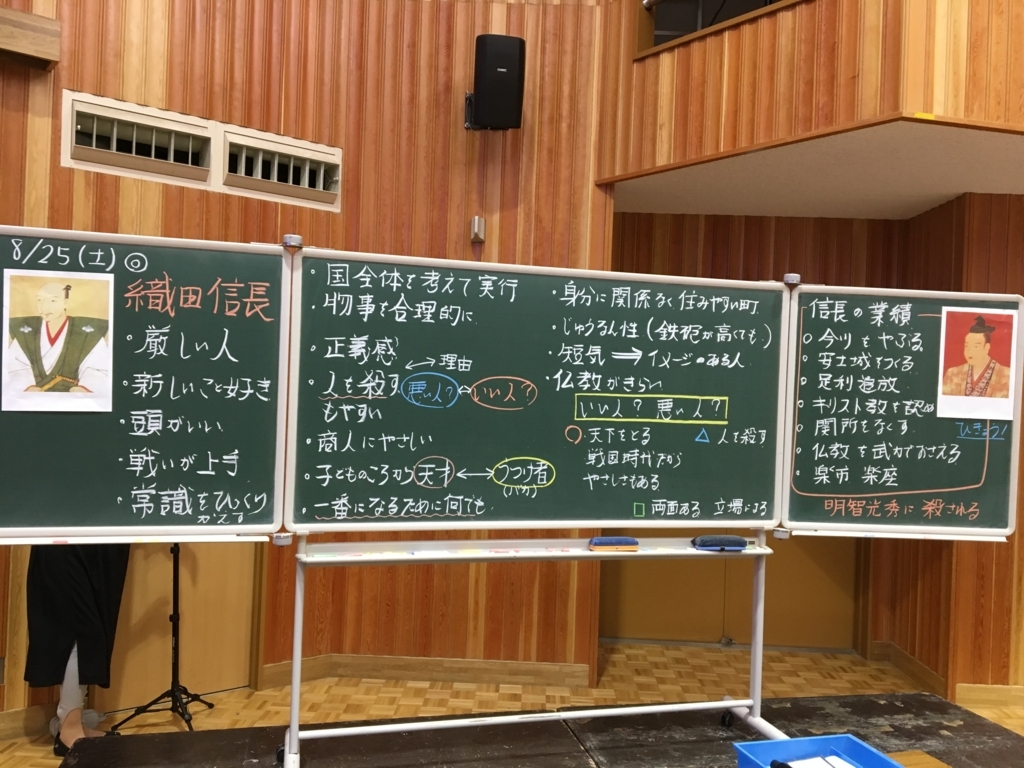 8/25(土) ◎
織田信長
・厳しい人
・新しいこと好き
・頭がいい
・戦いが上手
・常識をひっくり
かえす
・国全体を考えて実行
・物事を合理的に
・正義感
・人を殺す
もやすい
理由
悪い人?
いい人?
・商人にやさしい
・子どものころから天才 ↔ うつけ者
(バカ)
・一番になるために何でも
・身分に関係なく住みやすい町
・じゅうなん性(鉄砲が高くても)
・短気 ⇒ イメージのある人
・仏教がきらい
いい人? 悪い人?
○・天下をとる
戦国時代だから
やさしさもある
△ 人を殺す
□ 両面ある 立場による
信長の業績
・今川をやぶる
・安土城をつくる
・足利追放
・キリスト教を認め
・関所をなくす
・仏教を武力でおさえる
・楽市 楽座
ひきょう!
明智光秀に殺される